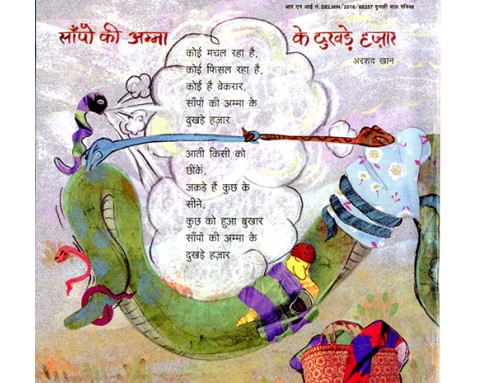 आर एन आई नं. DELHIN/2016/69357 प्लूटो बाल पत्रिका
साँपों की अम्मा के दुखड़े हज़ार
अरशद खान
कोई मचल रहा है,
कोई फिसल रहा है,
कोई है बेकरार,
साँपों की अम्मा के
दुखड़े हज़ार
आती किसी को
छींकें,
जकड़े हैं कुछ के
सीने,
कुछ को हुआ बुखार
साँपों की अम्मा के
दुखड़े हज़ार